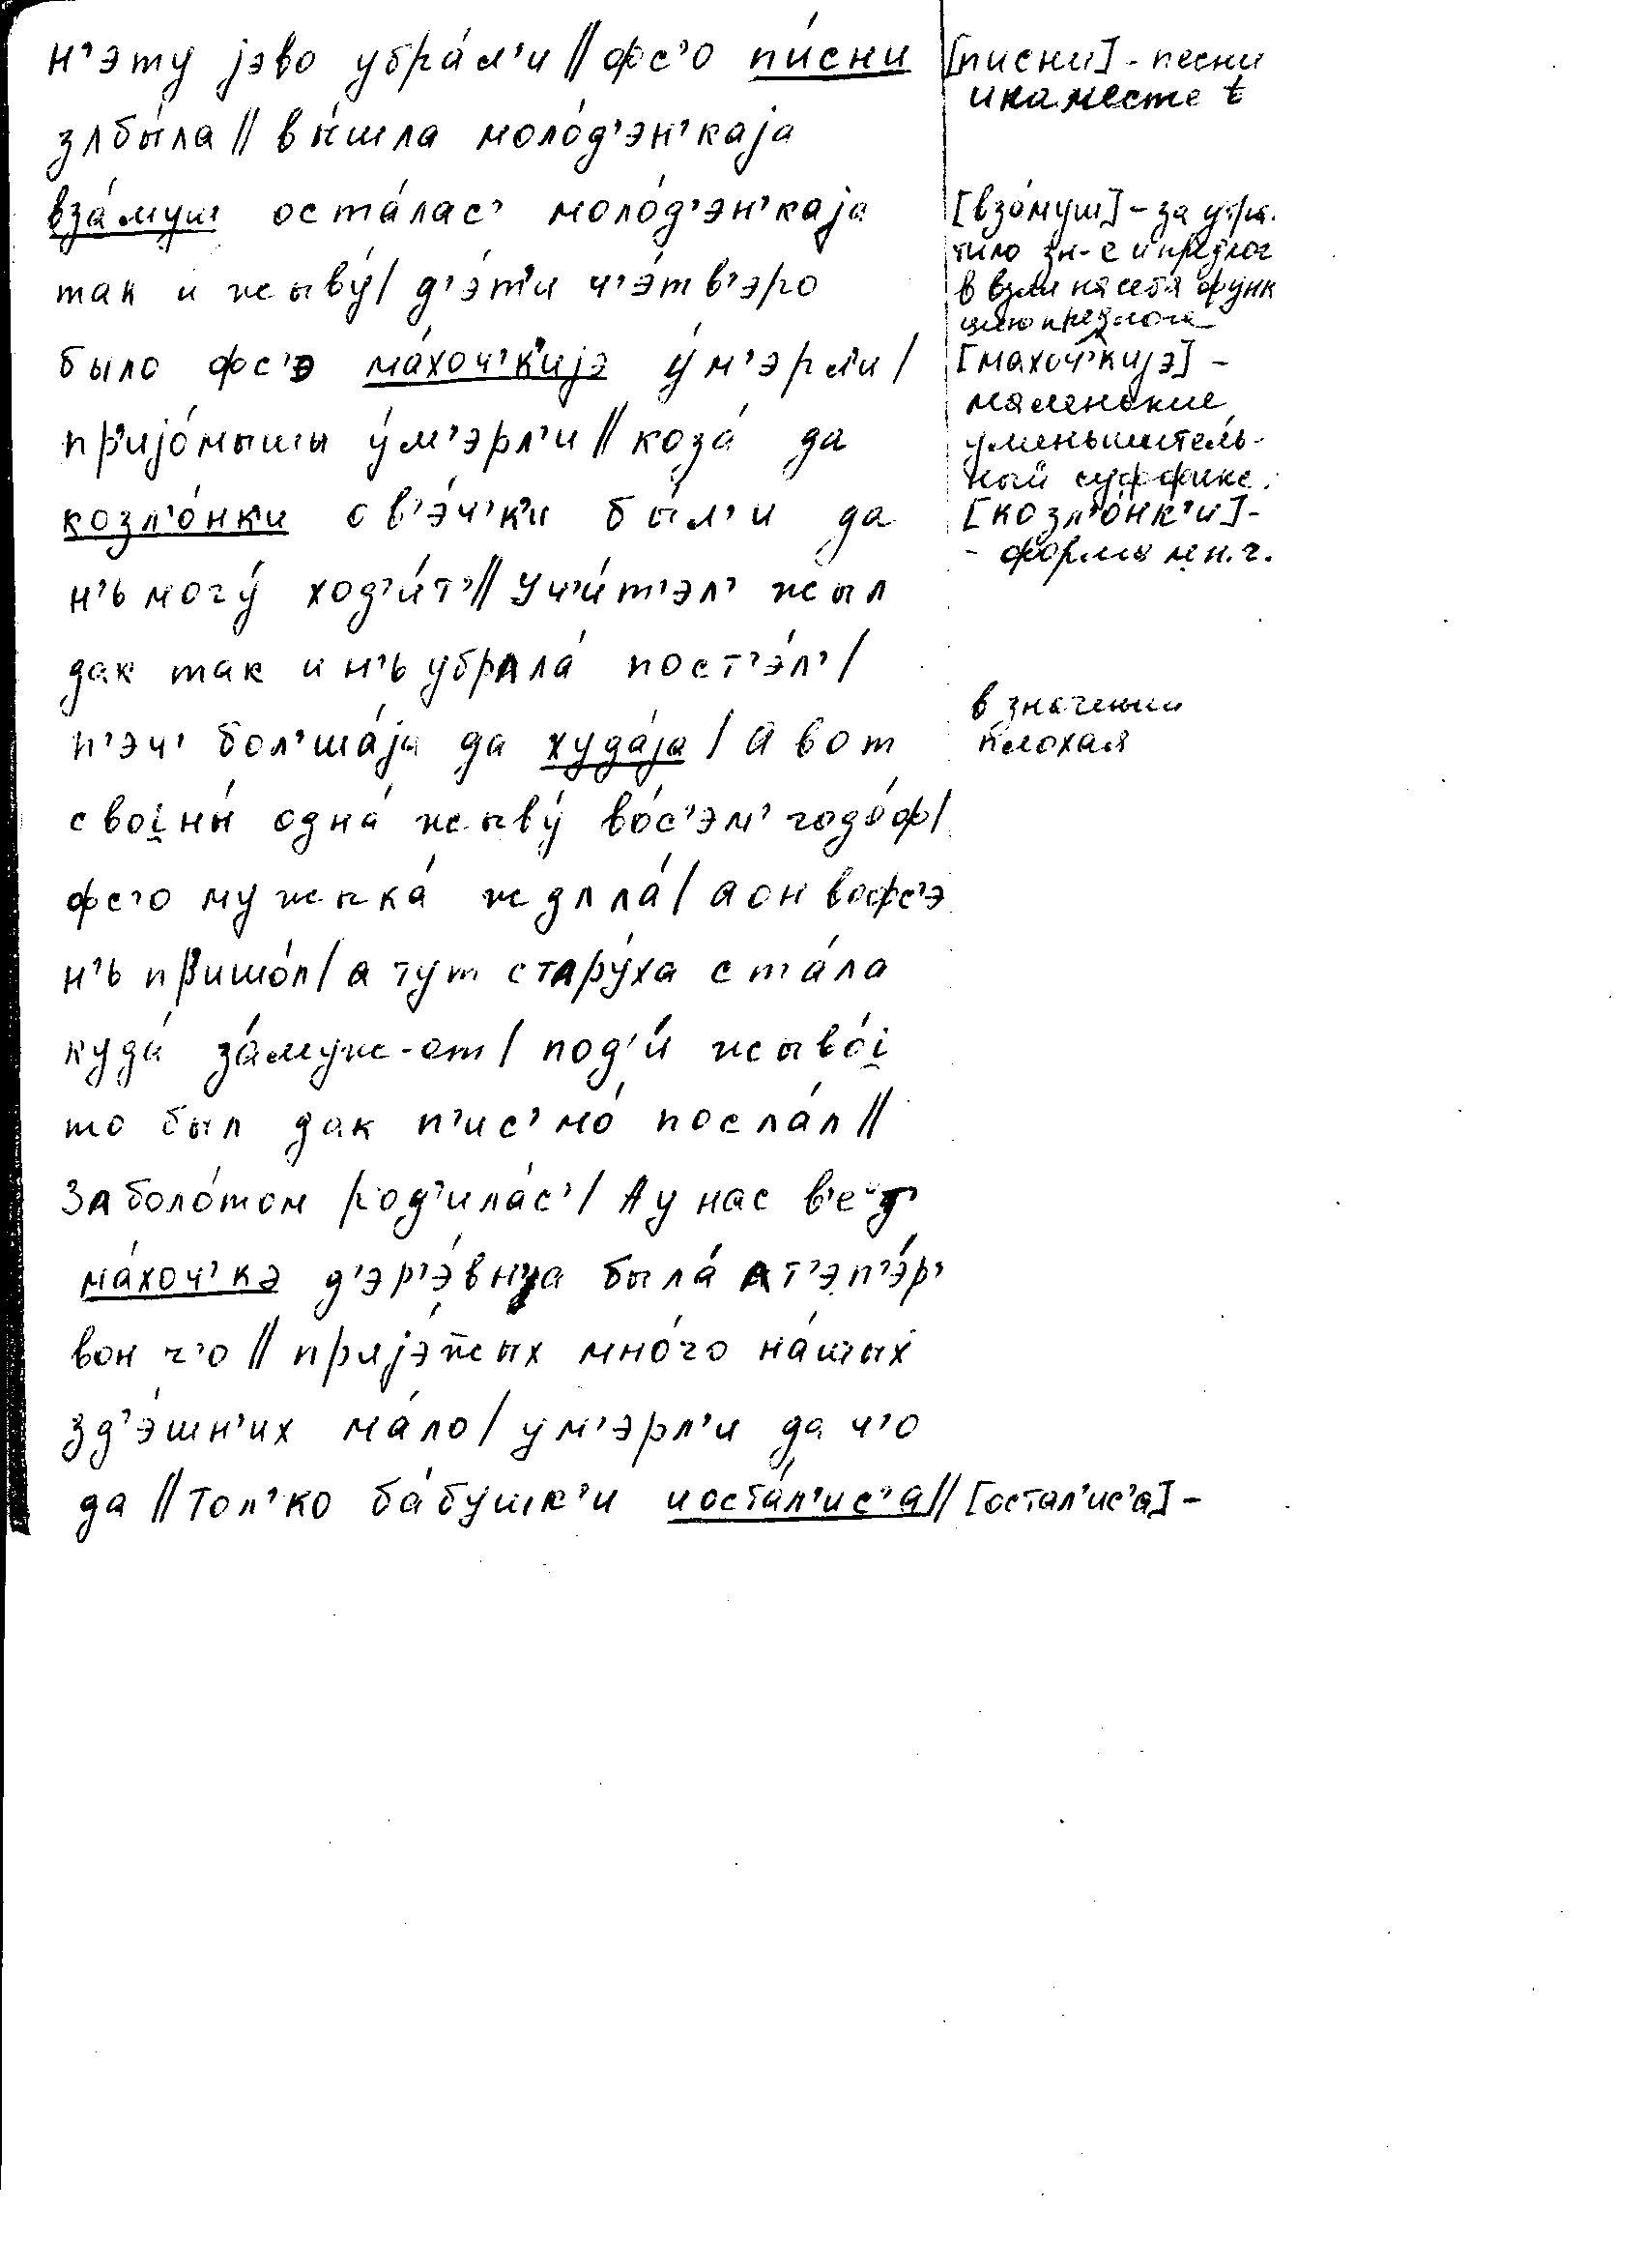 н’эту jэво убра́л’и // фс’о пи́сни
зʌбы́ла // вы́шла моло́д’эн’каjа
вза́муш оста́лас’ моло́д’эн’каjа
так и жыву́ / д’э́т’и ч’э́тв’эро
было фс’э ма́хоч’к’иjэ у́м’эрл’и /
пр’иjо́мышы у́м’эрл’и // коза́ да
козл’о́нки ов’э́ч’к’и бы́л’и да
н’ь могу́ ход’и́т’ // уч’и́т’эл’ жыл
дак так и н’ь убрʌла́ пост’э́л’ /
п’эч’ бол’ша́jа да худа́jа / а вот
с воi̯ны́ одна́ жыву́ во́с’эм’ годо́ф /
фс’о мужыка́ ждʌла́ / а он вофс’э
н’ь пришо́л / а тут стʌру́ха ста́ла
куда́ за́муж-от / под’и́ жыво́i̯
то был дак п’ис’мо́ посла́л //
За боло́том род’ила́с’ / А у нас в’ед’
ма́хоч’кэ д’эр’э́внjа была́ ʌ т’эп’э́р’
вон ч’о // приjэ́жых мно́го на́шых
зд’э́шн’их ма́ло / ум’эрл’и да ч’о
да // Тол’ко ба́бушк’и и оста́л’ис’а //
[писни] - песни
и на месте ѣ
[вза́муш] - за утра-
тило зн-е и предлог
в взял на себя функ
цию предлога
[махоч’киjэ] -
маленькие
уменьшитель-
ный суффикс.
[козл’о́нк’и] -
- форма мн.ч.
в значении
плохая
[остал’ис’а] -